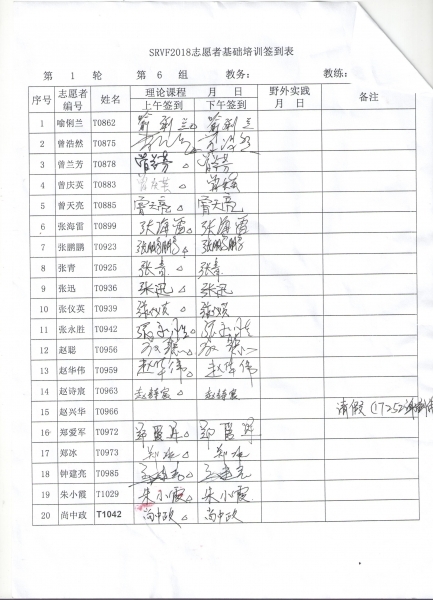 SRVF2018志愿者基础培训签到表
第 1 轮 第 6 组 教务: 教练:
序号 志愿者编号 姓名 理论课程 月 日 野外实践 月 日 备注
上午签到 下午签到
1 喻俐兰 T0862 喻俐兰 喻俐兰
2 曾浩然 T0875
3 曾兰芳 T0878 曾兰芳
4 曾庆英 T0883 曾庆英 曾庆英
5 曾天亮 T0885 曾天亮 曾天亮
6 张海雷 T0899 张海雷 张海雷
7 张鹏鹏 T0923 张鹏鹏 张鹏鹏
8 张青 T0925 张青 张青
9 张迅 T0936 张迅 张迅
10 张仪英 T0939 张仪英 张仪英
11 张永胜 T0942 张永胜 张永胜
12 赵聪 T0956
13 赵华伟 T0959 赵华伟 赵华伟
14 赵诗宸 T0963 赵诗宸 赵诗宸
15 赵兴华 T0966 请假
16 郑爱军 T0972 郑爱军 郑爱军
17 郑冰 T0973 郑冰 郑冰
18 钟建亮 T0985
19 朱小霞 T1029 朱小霞 朱小霞
20 尚中政 T1042 尚中政 尚中政